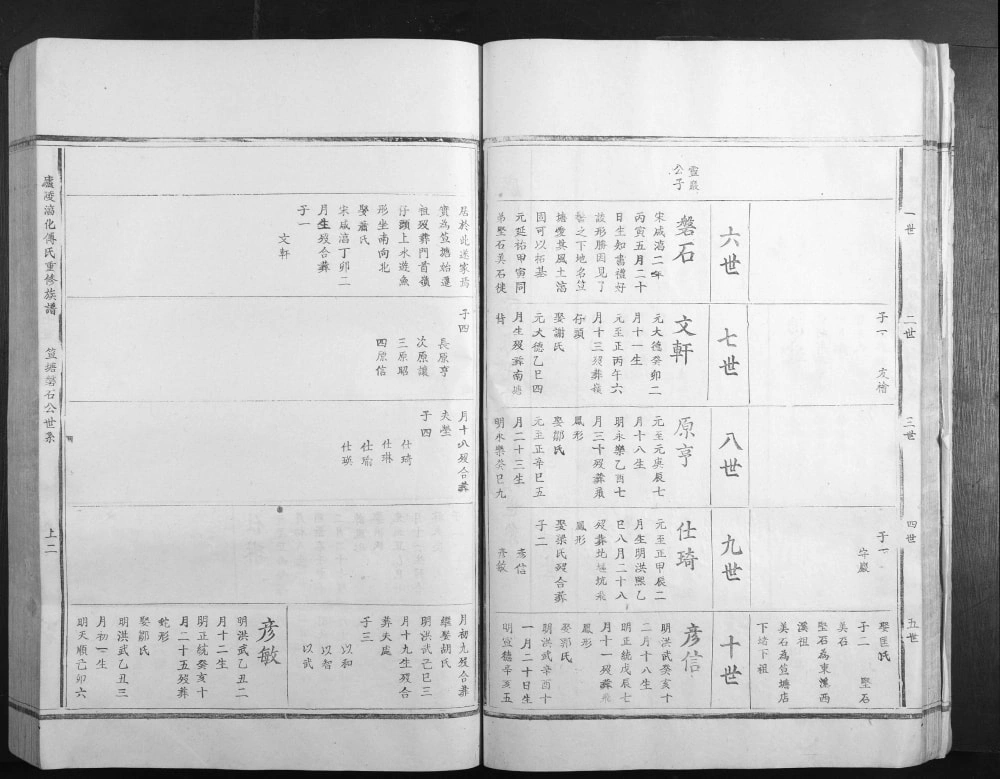 一世
二世
三世
四世
五世
子一
友檜
子一
守嚴
娶匡氏
子二
堅石
美石
堅石為東漢西
漢祖
美石為笪塘店
下塘下祖
六世
七世
八世
九世
十世
靈嚴
公子
磐石
宋咸淳二年
丙寅五月二十
日生知書禮好
談形勝因見了
之下地名笪
塘愛其風土淳
固可以拓基
元延祐甲寅同
弟堅石美石徙
居於此遂家焉
實為笪塘始遷
祖歿葬門首嶺
仔頭上水遊魚
形坐南向北
娶蕭氏
宋咸淳丁卯二
月生歿合葬
子一
文軒
文軒
元大德癸卯二
月十一生
元至正丙午六
月十三歿葬嶺
仔頭
娶謝氏
元大德乙巳四
月生歿葬南塘
背
子四
長原亨
次原讓
三原昭
四原信
原亨
元至元庚辰七
月十八生
明永樂乙酉七
月三十歿葬飛
鳳形
娶鄒氏
元至正辛巳五
月二十三生
明永樂癸巳九
月十八歿合葬
夫塋
子四
仕琦
仕琳
仕瑜
仕瑛
仕琦
元至正甲辰二
月生明洪熙乙
巳八月二十八
歿葬北塘坑飛
鳳形
娶梁氏歿合葬
子二
彥信
彥敏
彥信
明洪武癸亥十
二月十八生
明正統戊辰七
月十一歿葬飛
鳳形
娶郭氏
明洪武辛酉十
一月二十日生
明宣德辛亥五
月初九歿合葬
繼娶胡氏
明洪武己巳三
月十九生歿合
葬夫處
子三
以和
以智
以武
彥敏
明洪武乙丑二
月十二生
明正統癸亥十
月二十五歿葬
蛇形
娶鄒氏
明洪武乙丑三
月初一生
明天順己卯六
廬陵淳化傅氏重修族譜
笪塘磐石公世系
上二